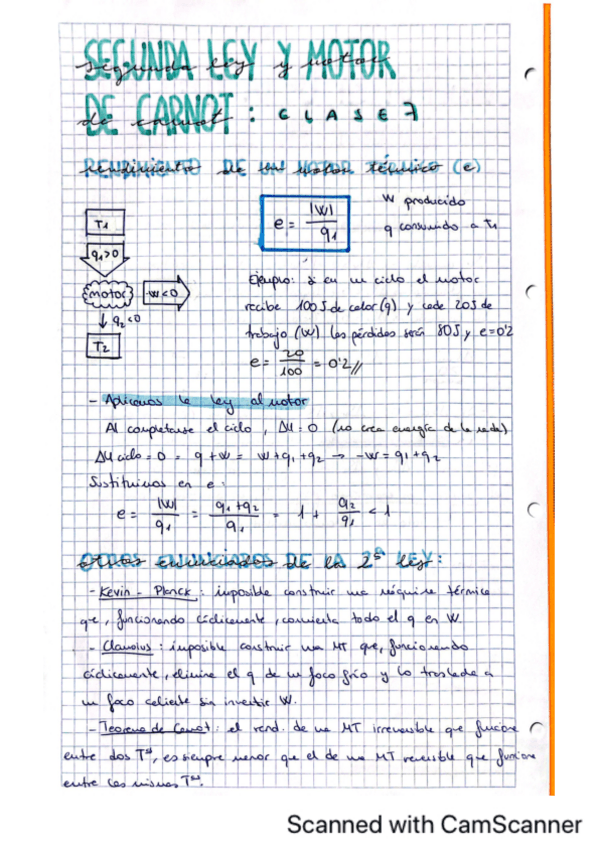 SEGUNDA LEY Y MOTOR
segunda ley y motor
DE CARNOT: CLASE 7
de carnot
RENDIMIENTO DE UN MOTOR TÉRMICO (e)
T1
q1>0
motor
-W<0
q2<0
T2
e = |W| / q1
W producido
q consumido a T1
Ejemplo: si en un ciclo el motor
recibe 100J de calor (q) y cede 20J de
trabajo (W) las pérdidas serán 80J y e=0'2
e = 20/100 = 0'2//
- Aplicamos la ley al motor
Al completarse el ciclo, ΔU = 0 (no crea energía de la nada)
ΔU ciclo = 0 = q + W = W + q1 + q2 → -W = q1 + q2
Sustituimos en e:
e = |W| / q1 = q1 + q2 / q1 = 1 + q2 / q1 < 1
OTROS ENUNCIADOS DE LA 2ª ley:
- Kevin - Planck: imposible construir una máquina térmica
que, funcionando cíclicamente, convierta todo el q en W.
- Clausius: imposible construir una MT que, funcionando
cíclicamente, elimine el q de un foco frío y lo traslade a
un foco caliente sin invertir W.
- Teorema de Carnot: el rend. de una MT irreversible que funcione
entre dos Tᵃˢ, es siempre menor que el de una MT reversible que funcione
entre las mismas Tᵃˢ.
Scanned with CamScanner